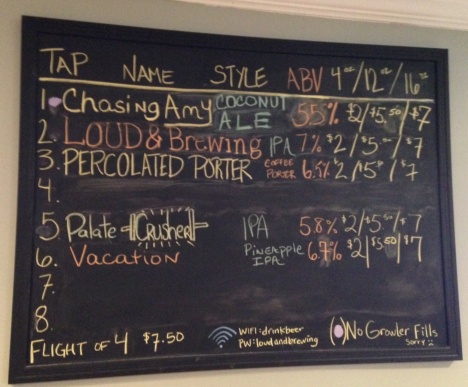 TAP NAME STYLE ABV 4oz/12oz/16oz
1. Chasing Amy COCONUT ALE 5.5% $2/$5.50/$7
2. LOUD & Brewing IPA 7% $2/$5.00/$7
3. PERCOLATED PORTER COFFEE PORTER 6.5% $2/$5/$7
4.
5. Palate Crusher IPA 5.8% $2/$5.50/$7
6. VACATION PINEAPPLE IPA 6.7% $2/$5.50/$7
7.
8.
FLIGHT OF 4 $7.50 WIFI: drinkbeer (O) No Growler Fills
PW: loudandbrewing Sorry :(